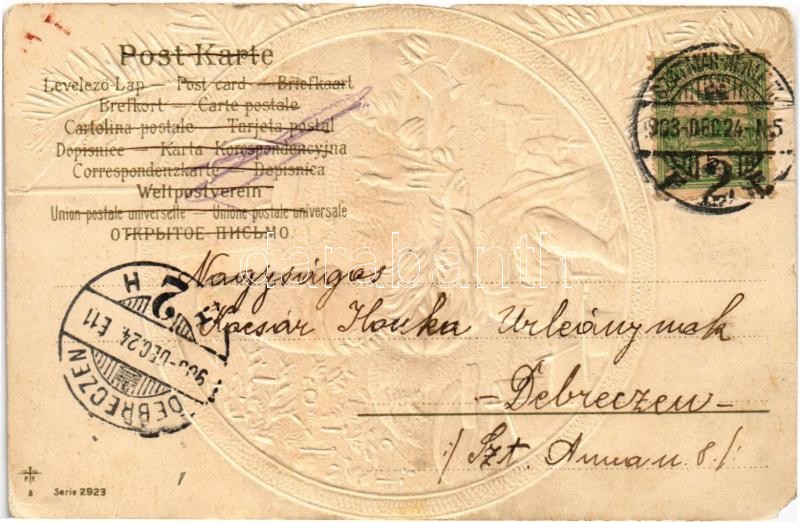 Post Karte
Levelező Lap — Post card — Briefkaart
Brefkort — Carte postale
Cartolina postale — Tarjeta postal
Dopisnice — Karta Korespondencyjna
Correspondenzkarte — Dopisnica
Weltpostverein
Union postale universelle — Unione postale universale
ОТКРЫТОЕ ПИСЬМО
903-DEC.24-N.5
2
Nagyságos
Kocsár Ilonka Urleánynak
—Debreczen—
·/ Szt. Anna u. 8 /·
H 2
903-DEC.24. E.11
DEBRECZEN
darabanth
8 Serie 2923
1